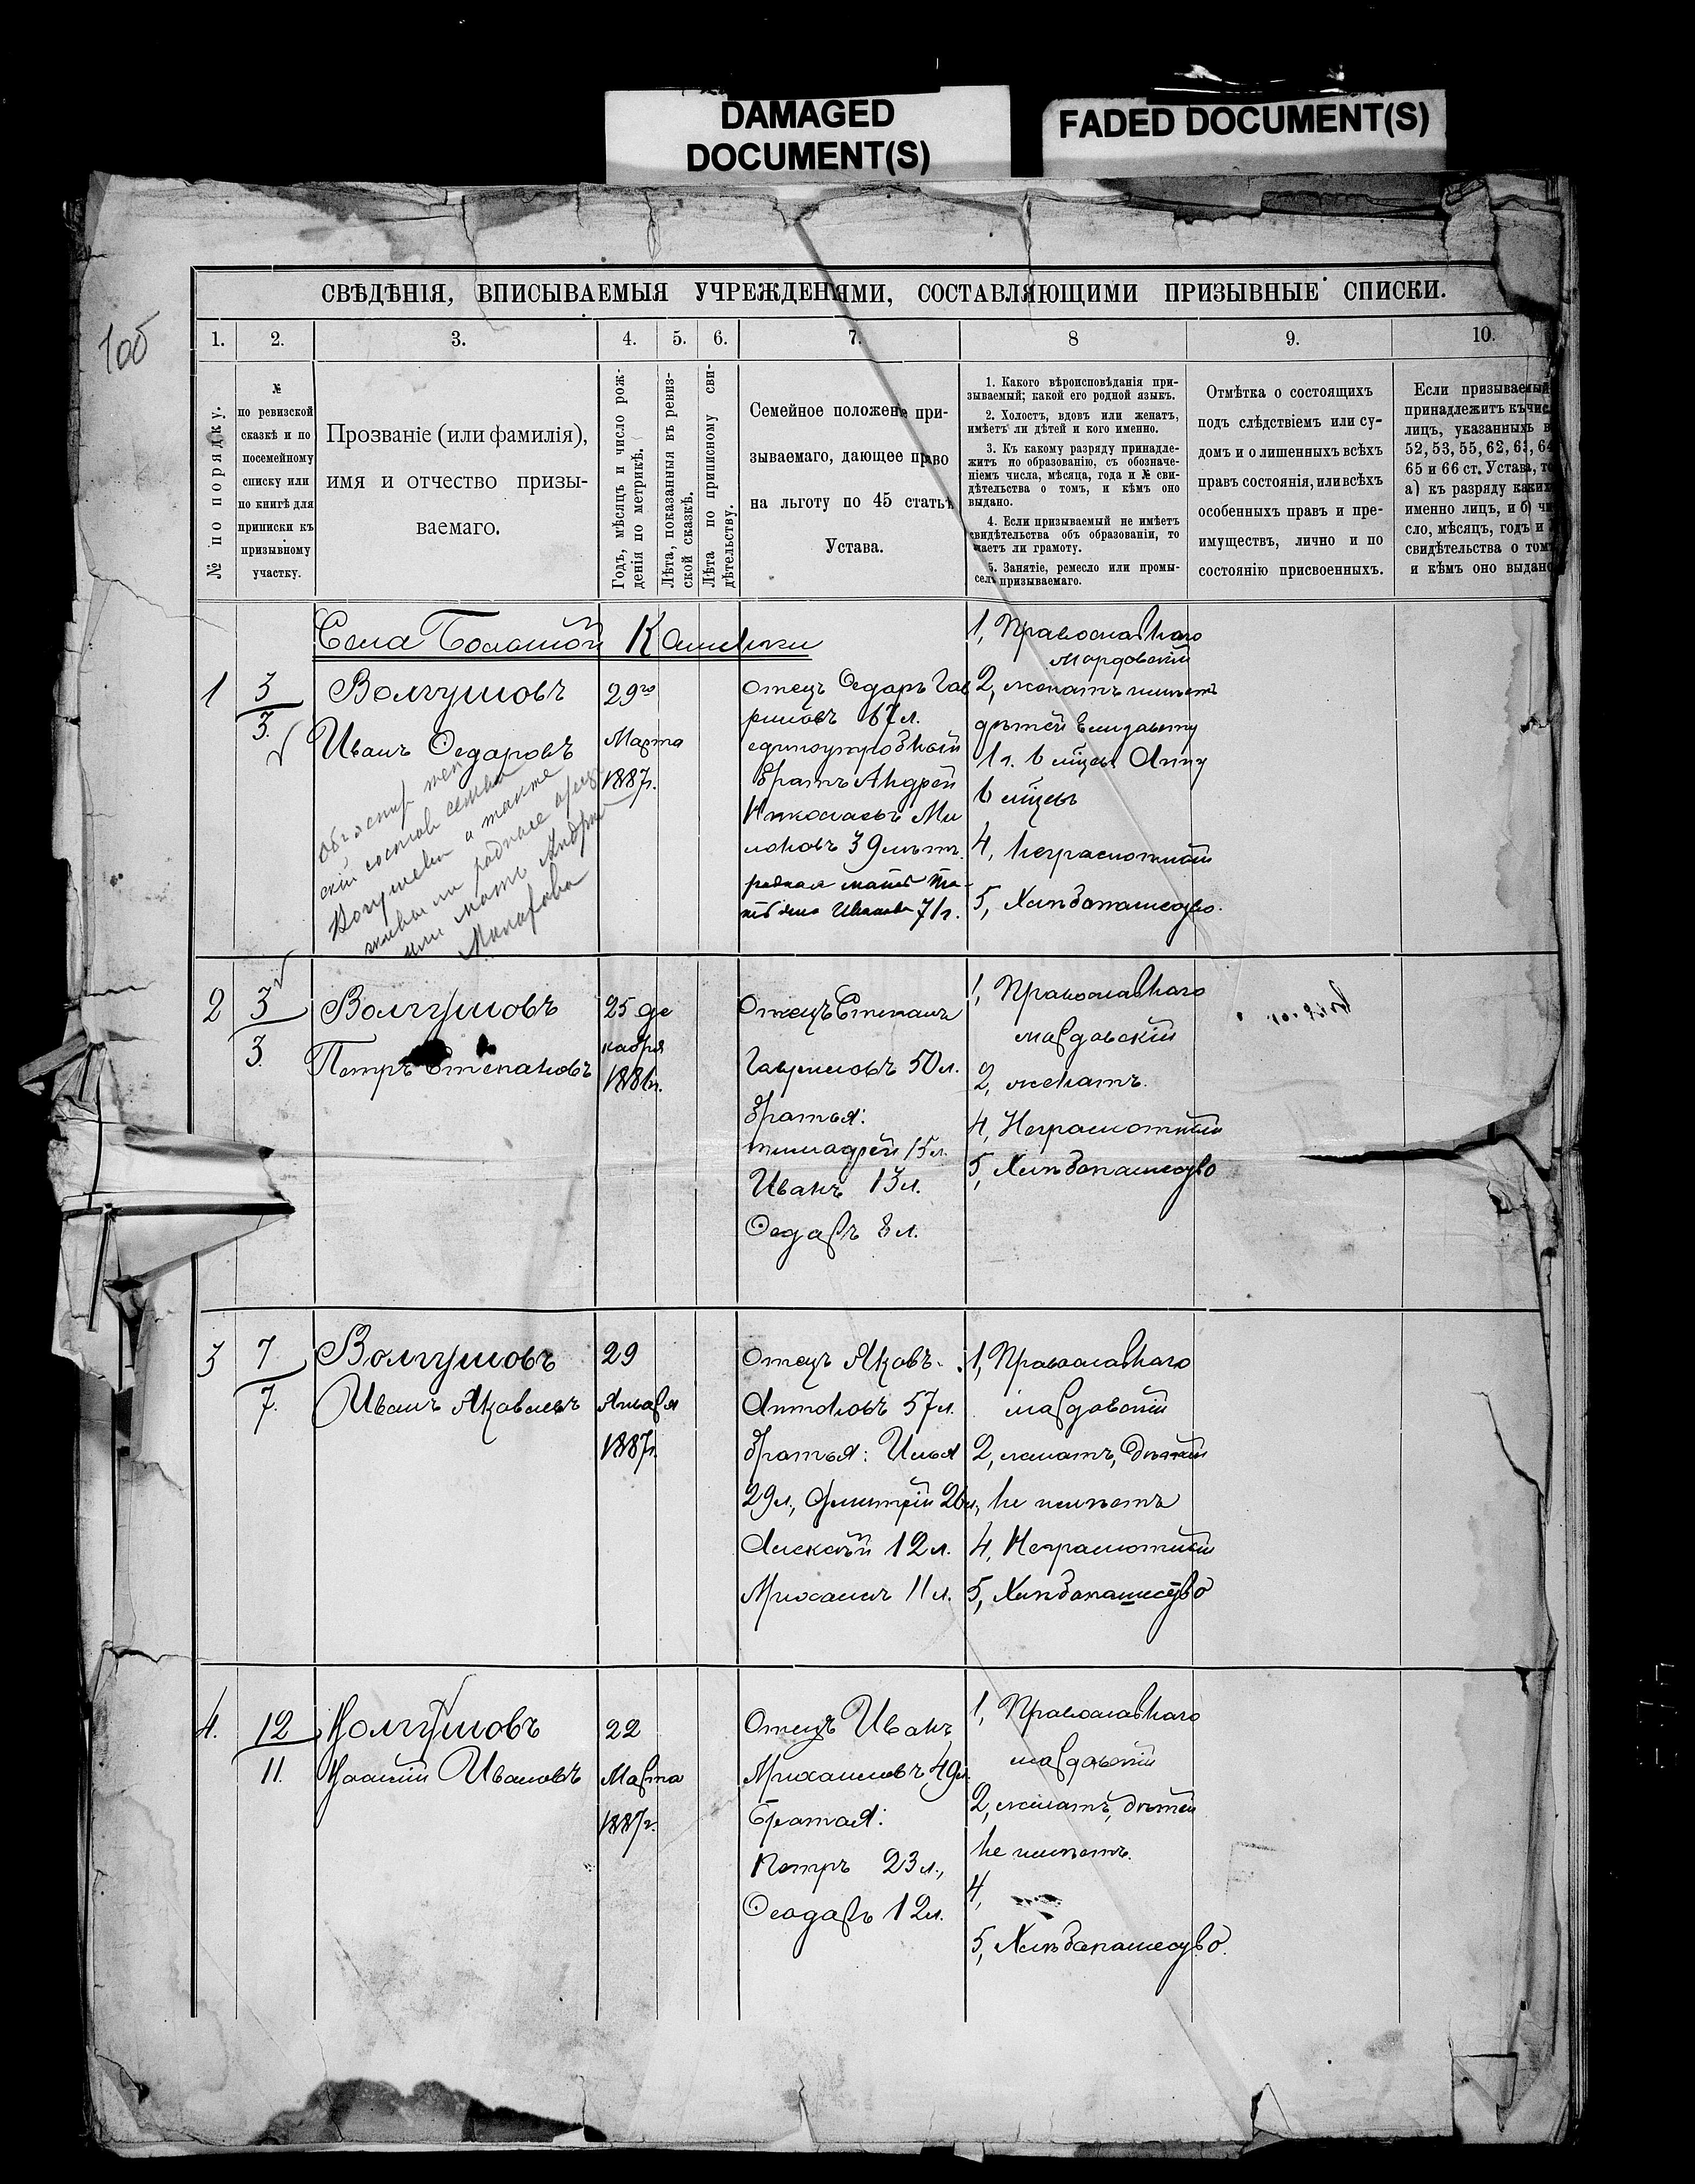 DAMAGED
DOCUMENT(S)
FADED DOCUMENT(S)
СВѢДѢНІЯ, ВПИСЫВАЕМЫЯ УЧРЕЖДЕНІЯМИ, СОСТАВЛЯЮЩИМИ ПРИЗЫВНЫЕ СПИСКИ.
1. 2. 3. 4. 5. 6. 7. 8 9. 10.
№ по порядку.
№
по ревизской
сказкѣ и по
посемейному
списку или
по книгѣ для
приписки къ
призывному
участку.
Прозваніе (или фамилія),
имя и отчество призы-
ваемаго.
Годъ, мѣсяцъ и число рож-
денія по метрикѣ.
Лѣта, показанныя въ ревиз-
ской сказкѣ.
Лѣта по приписному сви-
дѣтельству.
Семейное положеніе при-
зываемаго, дающее право
на льготу по 45 статьѣ
Устава.
1. Какого вѣроисповѣданія при-
зываемый; какой его родной языкъ.
2. Холостъ, вдовъ или женатъ,
имѣетъ ли дѣтей и кого именно.
3. Къ какому разряду принадле-
житъ по образованію, съ обозначе-
ніемъ числа, мѣсяца, года и № сви-
дѣтельства о томъ, и кѣмъ оно
выдано.
4. Если призываемый не имѣетъ
свидѣтельства объ образованіи, то
знаетъ ли грамоту.
5. Занятіе, ремесло или промы-
селъ призываемаго.
Отмѣтка о состоящихъ
подъ слѣдствіемъ или су-
домъ и о лишенныхъ всѣхъ
правъ состоянія, или всѣхъ
особенныхъ правъ и пре-
имуществъ, лично и по
состоянію присвоенныхъ.
Если призываемый
принадлежитъ къ чис
лицъ, указанныхъ в
52, 53, 55, 62, 63, 64
65 и 66 ст. Устава, то
а) къ разряду каких
именно лицъ, и б) чи
сло, мѣсяцъ, годъ и
свидѣтельства о том
и кѣмъ оно выдано
Села Большой
1
3
3.
Волгушовъ
Иванъ Федаровъ
29го
Марта
1887г.
отецъ Федаръ Гав
риловъ 67 л.
единоутробный
братъ Андрей
Николаевъ Ми
39 лѣтъ.
родная мать
Иванова 71 г.
1, Православнаго
Мордовскій
2, женатъ имѣетъ
дѣтей Елизавету
1 г. 6 мѣсяц Анну
6 мѣсяцъ
4, неграмотный
5, Хлѣбопашество.
2
3
3.
Волгушовъ
Петръ Степановъ
25 де
кабря
отецъ Степанъ
Гавриловъ 50 л.
братья:
15 л.
Иванъ 13 л.
Федаръ 8 л.
1, Православнаго
мордовскій
2, женатъ.
4, Неграмотный
5, Хлѣбопашество
3
7
7.
Волгушовъ
Иванъ Яковлевъ
29
Января
1887г.
отецъ Яковъ
Антоновъ 57 л.
братья: Илья
29 л., Дмитрій 26 л,
Алексѣй 12 л.
Михаилъ 11 л.
1, Православнаго
мордовскій
2, женатъ, дѣтей
не имѣетъ
4, Неграмотный
5, Хлѣбопашество
4.
12
11.
Волгушовъ
Ивановъ
22
Марта
1887г.
отецъ Иванъ
Михаиловъ 49 л.
братья:
Петръ 23 л.,
Феодаръ 12 л.
1, Православнаго
мордовскій
2, женатъ, дѣтей
не имѣетъ.
4,
5, Хлѣбопашество.